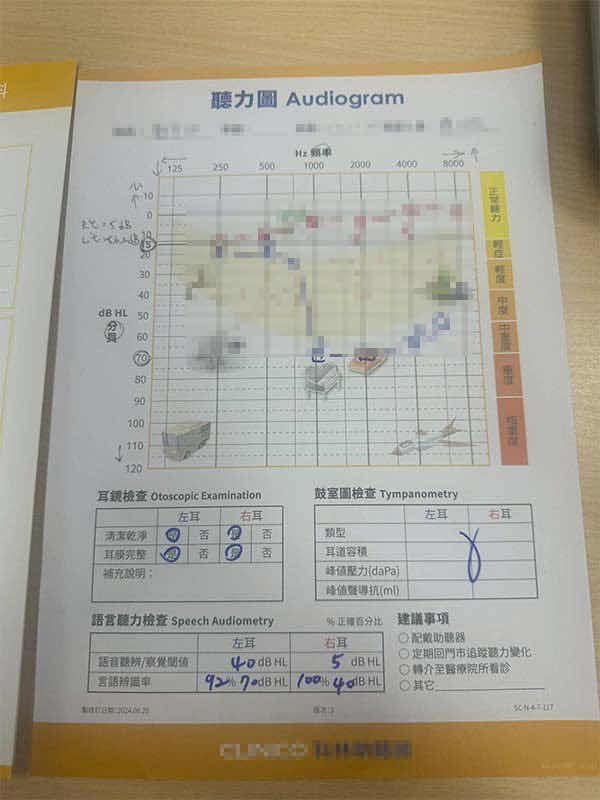 聽力圖 Audiogram
Hz 頻率
125 250 500 1000 2000 4000 8000
-10
0
10
15
20
30
40
50
60
70
80
90
100
110
120
dB HL
分貝
正常聽力
輕度
中度
中重度
重度
極重度
耳鏡檢查 Otoscopic Examination
左耳 右耳
清潔乾淨 是 否 是 否
耳膜完整 是 否 是 否
補充說明：
鼓室圖檢查 Tympanometry
左耳 右耳
類型
耳道容積
峰值壓力(daPa)
峰值聲導抗(ml)
語言聽力檢查 Speech Audiometry % 正確百分比
左耳 右耳
語音聽辨/察覺閾值 40 dB HL 5 dB HL
言語辨識率 92% 70 dB HL 100% 40 dB HL
建議事項
配戴助聽器
定期回門市追蹤聽力變化
轉介至醫療院所看診
其它
製修訂日期:2024.06.20
版次:3
SC-N-4-7-117
CLINICO 科林助聽器